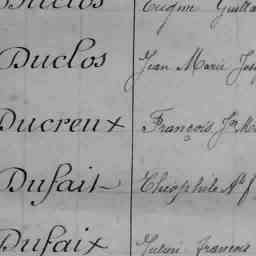 Duclos Eugène
Duclos Jean Marie
Ducreux François Jh
Dufait Théophile
Dufaix francois